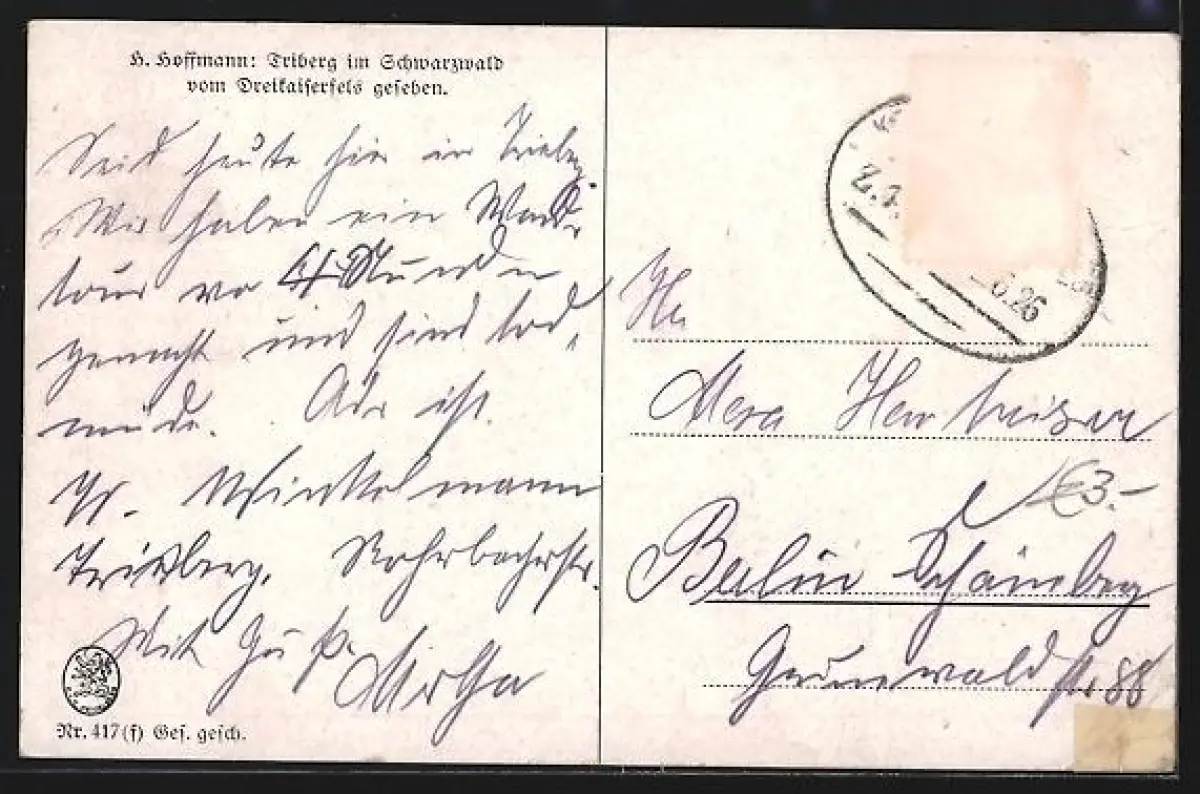 H. Hoffmann: Triberg im Schwarzwald
vom Dreikaiserfels gesehen.
Seid heute hier in Triberg
Wir haben ein
tour vo Stunden
gemacht und sind tod,
müde. Adr ist.
Winkelmann
Trieberg. Rohrbacherstr.
Mit Gruß.
Martha
Nr. 417 (f) Ges. gesch.
Z.
6.26
€3.-
Berlin Schöneberg
Grunewald str 88